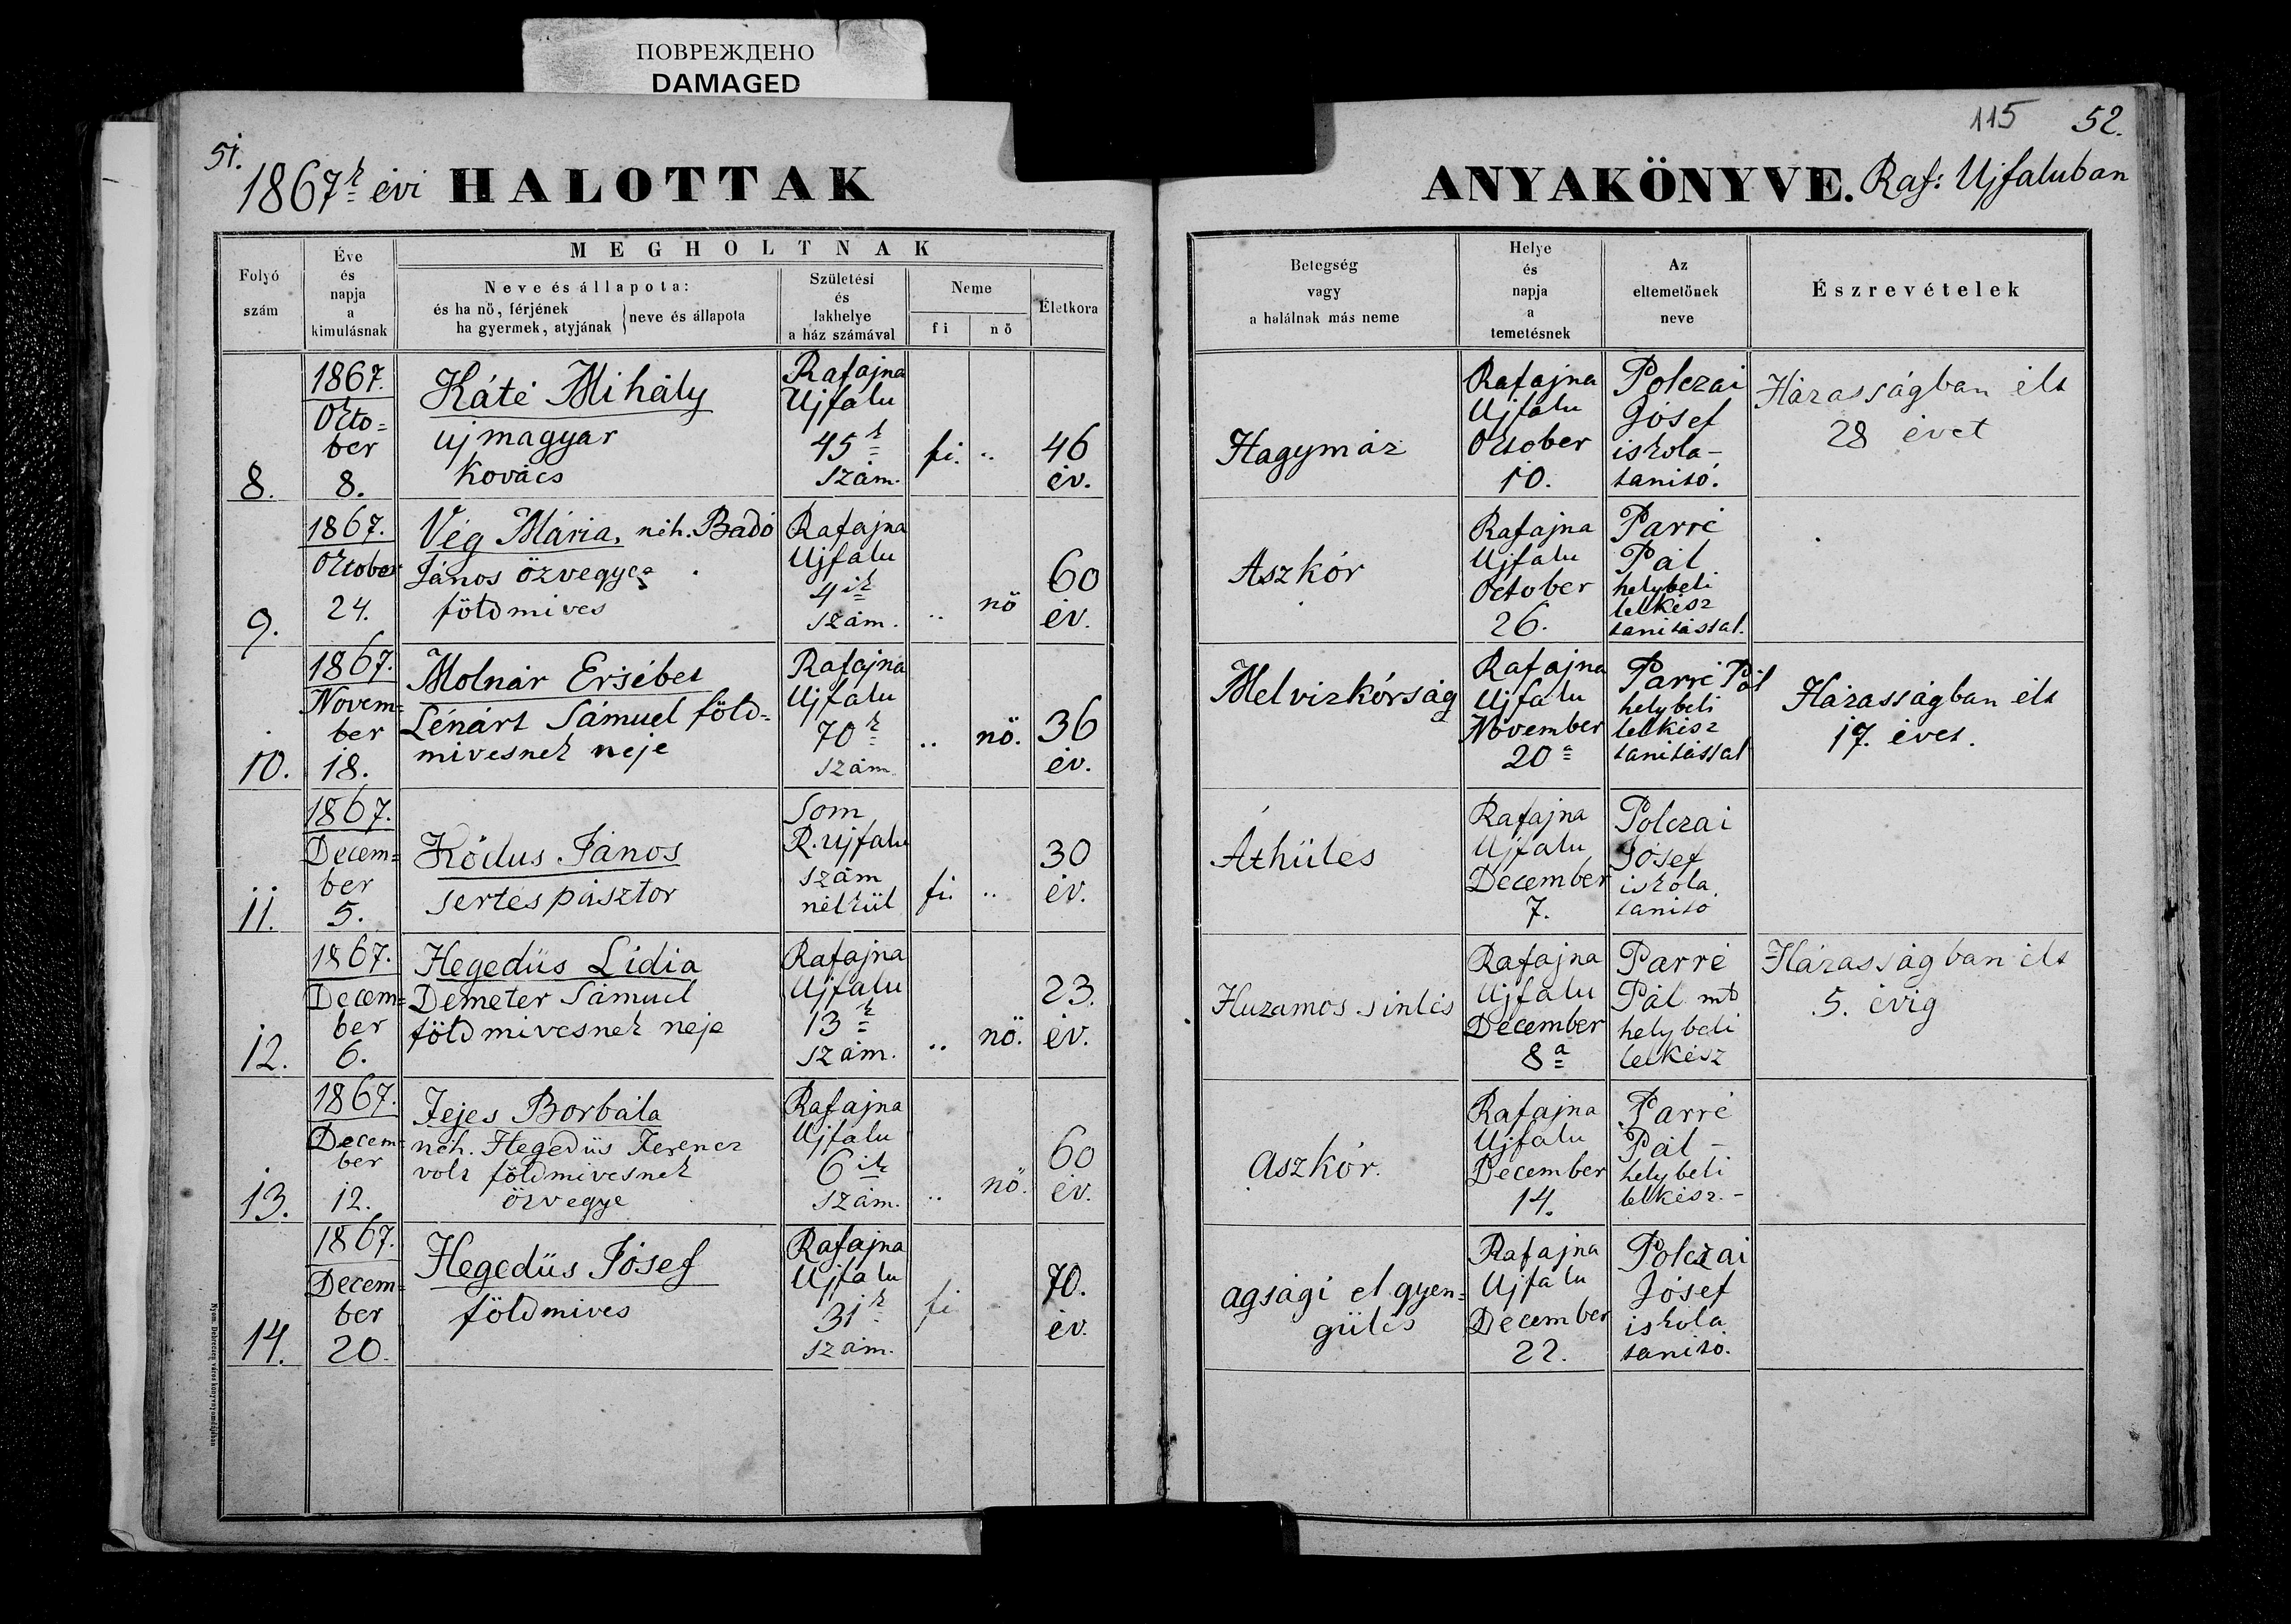 ПОВРЕЖДЕНО
DAMAGED
51.
1867k évi HALOTTAK
115 52.
ANYAKÖNYVE. Raf: Ujfaluban
Folyó
szám
Éve
és
napja
a
kimulásnak
MEGHOLTNAK
Neve és állapota:
és ha nő, férjének
ha gyermek, atyjának
neve és állapota
Születési
és
lakhelye
a ház számával
Neme
fi
nő
Életkora
Betegség
vagy
a halálnak más neme
Helye
és
napja
a
temetésnek
Az
eltemetőnek
neve
Észrevételek
8.
1867.
Octo=
ber
8.
Káté Mihály
ujmagyar
kovács
Rafajna
Ujfalu
45k
szám.
fi. ..
46
év.
Hagymáz
Rafajna
Ujfalu
October
10.
Polczai
Jósef
iskola-
tanitó.
Házasságban élt
28 évet
9.
1867.
October
24.
Vég Mária, néh. Badó
János özvegye
földmives
Rafajna
Ujfalu
4ik
szám.
.. nö
60
év.
Aszkór
Rafajna
Ujfalu
October
26.
Parré
Pál
helybeli
lelkész
tanitással.
10.
1867.
Novem=
ber
18.
Molnár Ersébet
Lénárt Sámuel föld=
mivesnek neje
Rafajna
Ujfalu
70k
szám
.. nö.
36
év.
Melvizkórság
Rafajna
Ujfalu
November
20a
Parré Pál
helybeli
lelkész
tanitással
Házasságban élt
17. évet.
11.
1867.
Decem=
ber
5.
Ködus János
sertés pásztor
Som
R. Ujfalu
szám
nélkül
fi. ..
30
év.
Áthülés
Rafajna
Ujfalu
December
7.
Polczai
Jósef
iskola
tanitó
12.
1867.
Decem=
ber
6.
Hegedüs Lidia
Demeter Sámuel
földmivesnek neje
Rafajna
Ujfalu
13k
szám.
.. nö.
23.
év.
Huzamos sinlés
Rafajna
Ujfalu
December
8a
Parré
Pál
helybeli
lelkész
Házasságban élt
5. évig
13.
1867.
Decem=
ber
12.
Fejes Borbála
néh. Hegedüs Ferencz
volt földmivesnek
özvegye
Rafajna
Ujfalu
6ik
szám.
.. nö.
60
év.
Aszkór.
Rafajna
Ujfalu
December
14.
Parré
Pál -
helybeli
lelkész. -
14.
1867.
Decem=
ber
20.
Hegedüs Jósef
földmives
Rafajna
Ujfalu
31k
szám.
fi
70.
év.
agsági el gyen=
gülés
Rafajna
Ujfalu
December
22.
Polczai
Jósef
iskola
tanitó.
Nyom. Debreczen város könyvnyomdájában